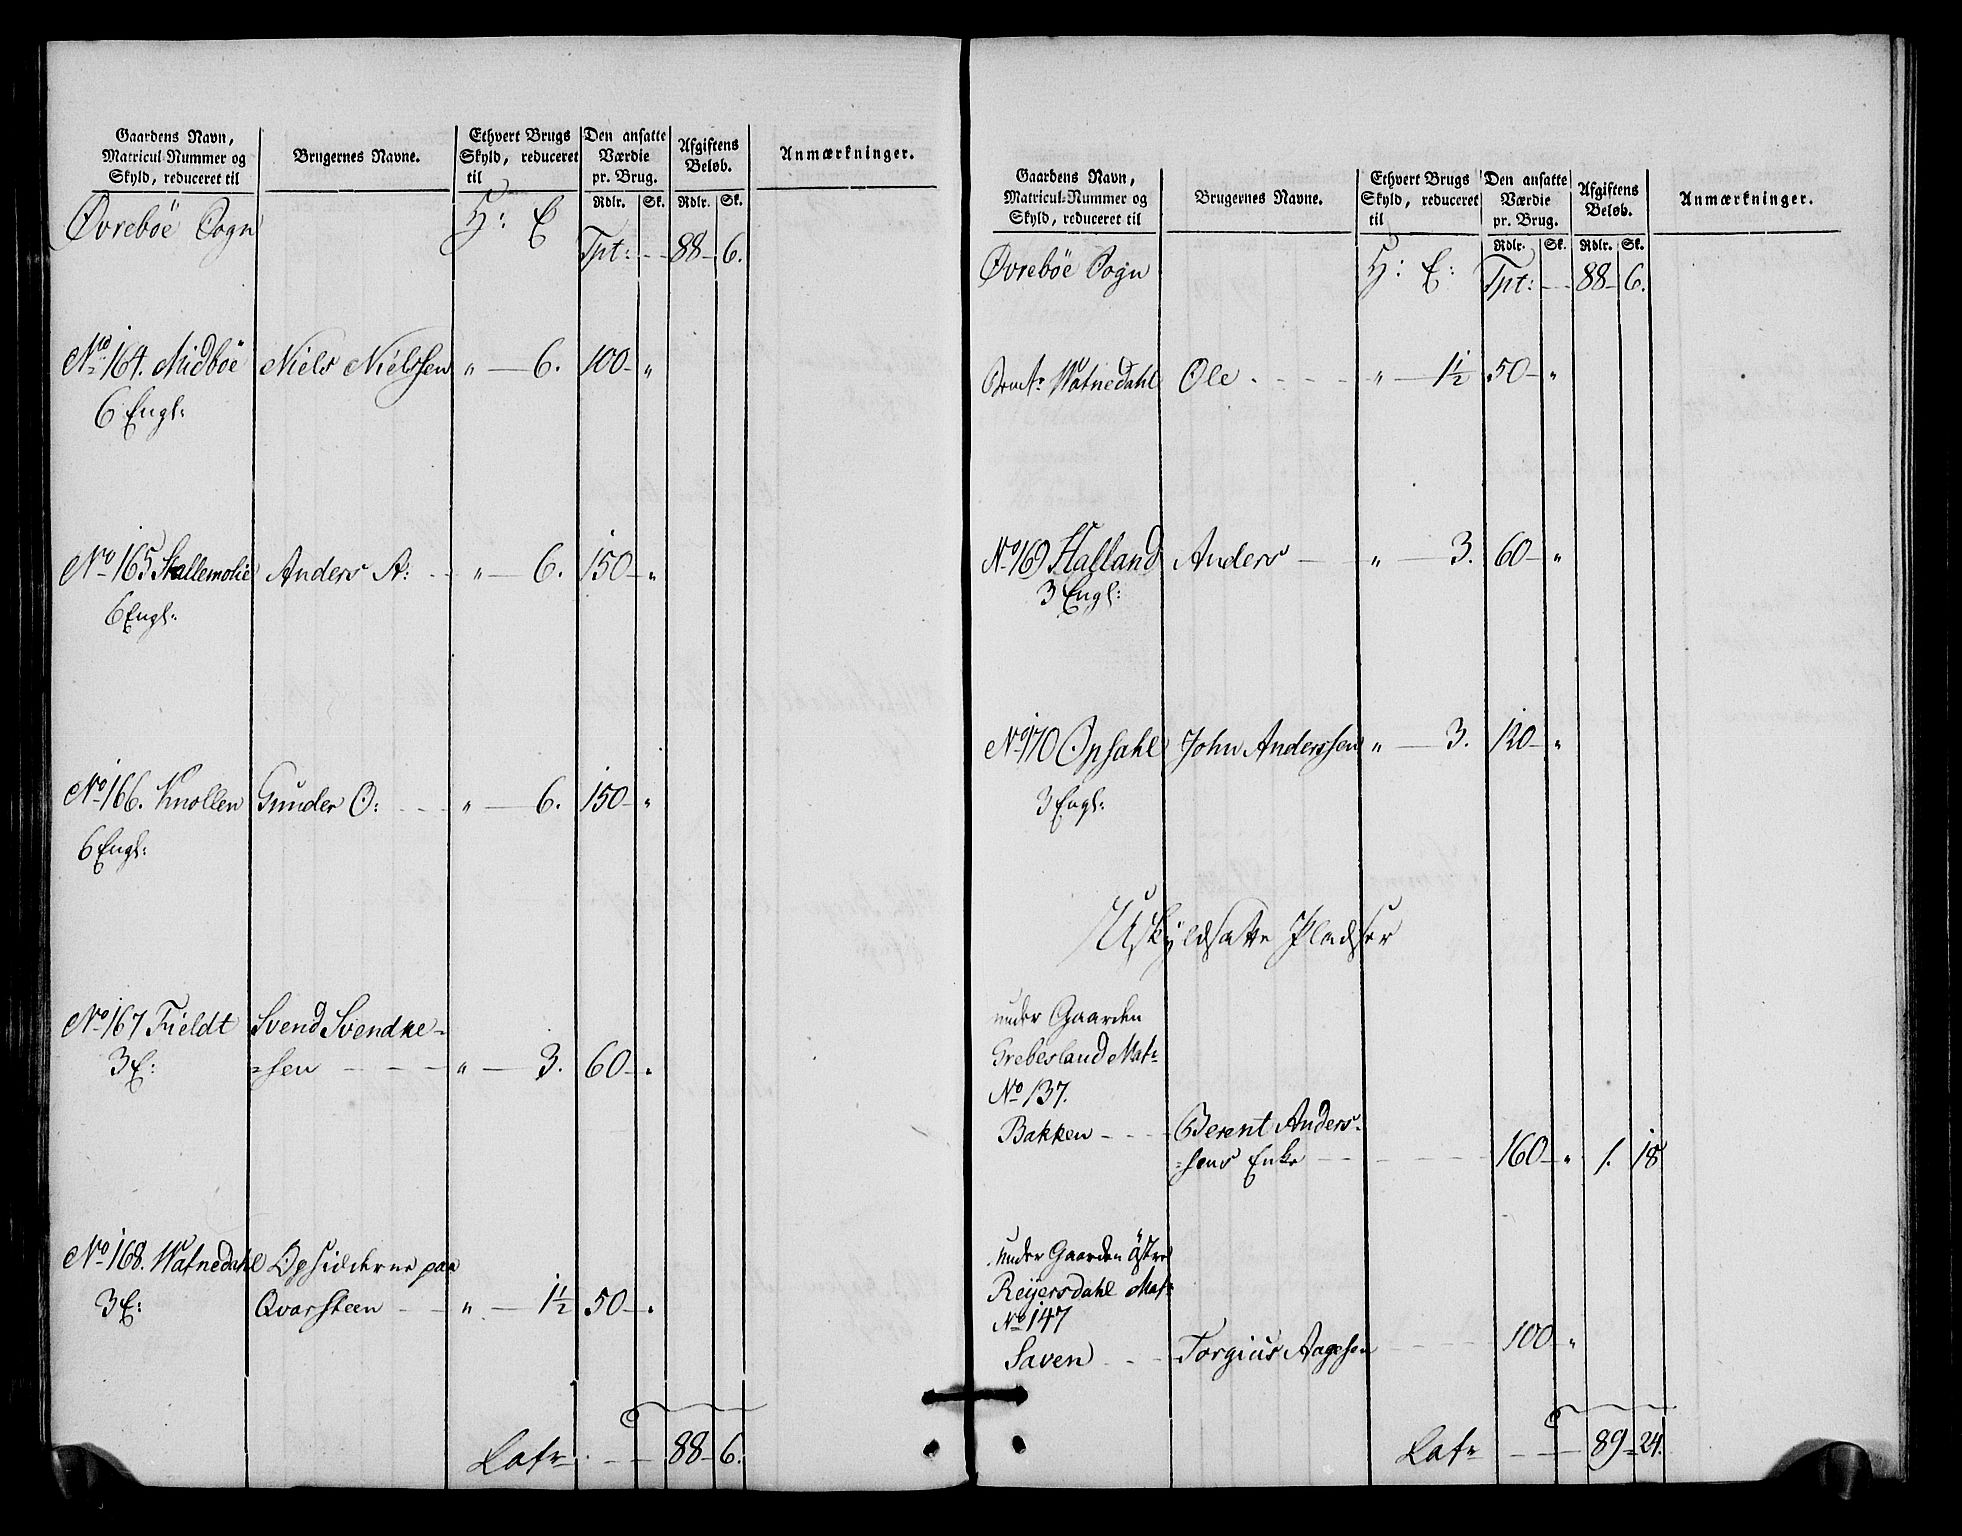 Gaardens Navn,
Matricul-Nummer og
Skyld, reduceret til
Brugernes Navne.
Ethvert Brugs
Skyld, reduceret
til
Den ansatte
Værdie
pr. Brug.
Afgiftens
Beløb.
Anmærkninger.
Rdlr. Sk. Rdlr. Sk.
Øvrebøe Sogn H: E
Tpt: - - 88 - 6.
No 164. Midbøe Niels Nielssen " - 6. 100 - "
6 Engl:
No 165 Skallemolie Anders A: - - " - 6. 150 - "
6 Engl:
No 166. Knollen Gunder O: - - - " - 6. 150 - "
6 Engl:
No 167 Fieldt Svend Svendke-
3 E: =sen - - - - " - 3. 60 - "
No 168. Watnedahl Opsidderne paa
3 E: Qvarsteen - - " - 1½ 50 - "
Latr - - - 88 - 6.
Gaardens Navn,
Matricul-Nummer og
Skyld, reduceret til
Brugernes Navne.
Ethvert Brugs
Skyld, reduceret
til
Den ansatte
Værdie
pr. Brug.
Afgiftens
Beløb.
Anmærkninger.
Rdlr. Sk. Rdlr. Sk.
Øvrebøe Sogn H: E: Tpt: - - 88 - 6.
Watnedahl Ole - - - - " - 1½ 50 - "
No 169 Halland Anders - - " - 3. 60 - "
3 Engl:
No 170 Opsahl John Anderssen " - 3. 120 - "
3 Engl:
Uskyldsatte Pladser
under Gaarden
Grebesland Matr
No 137.
Bakken - - - Berent Anders-
=sens Enke - - - - - 160 - " 1. 18
under Gaarden Östre
Reijersdahl Matr
No 147
Saven - - - Torgius Aagesen - - - 100 - "
Latr - - - 89 - 24.